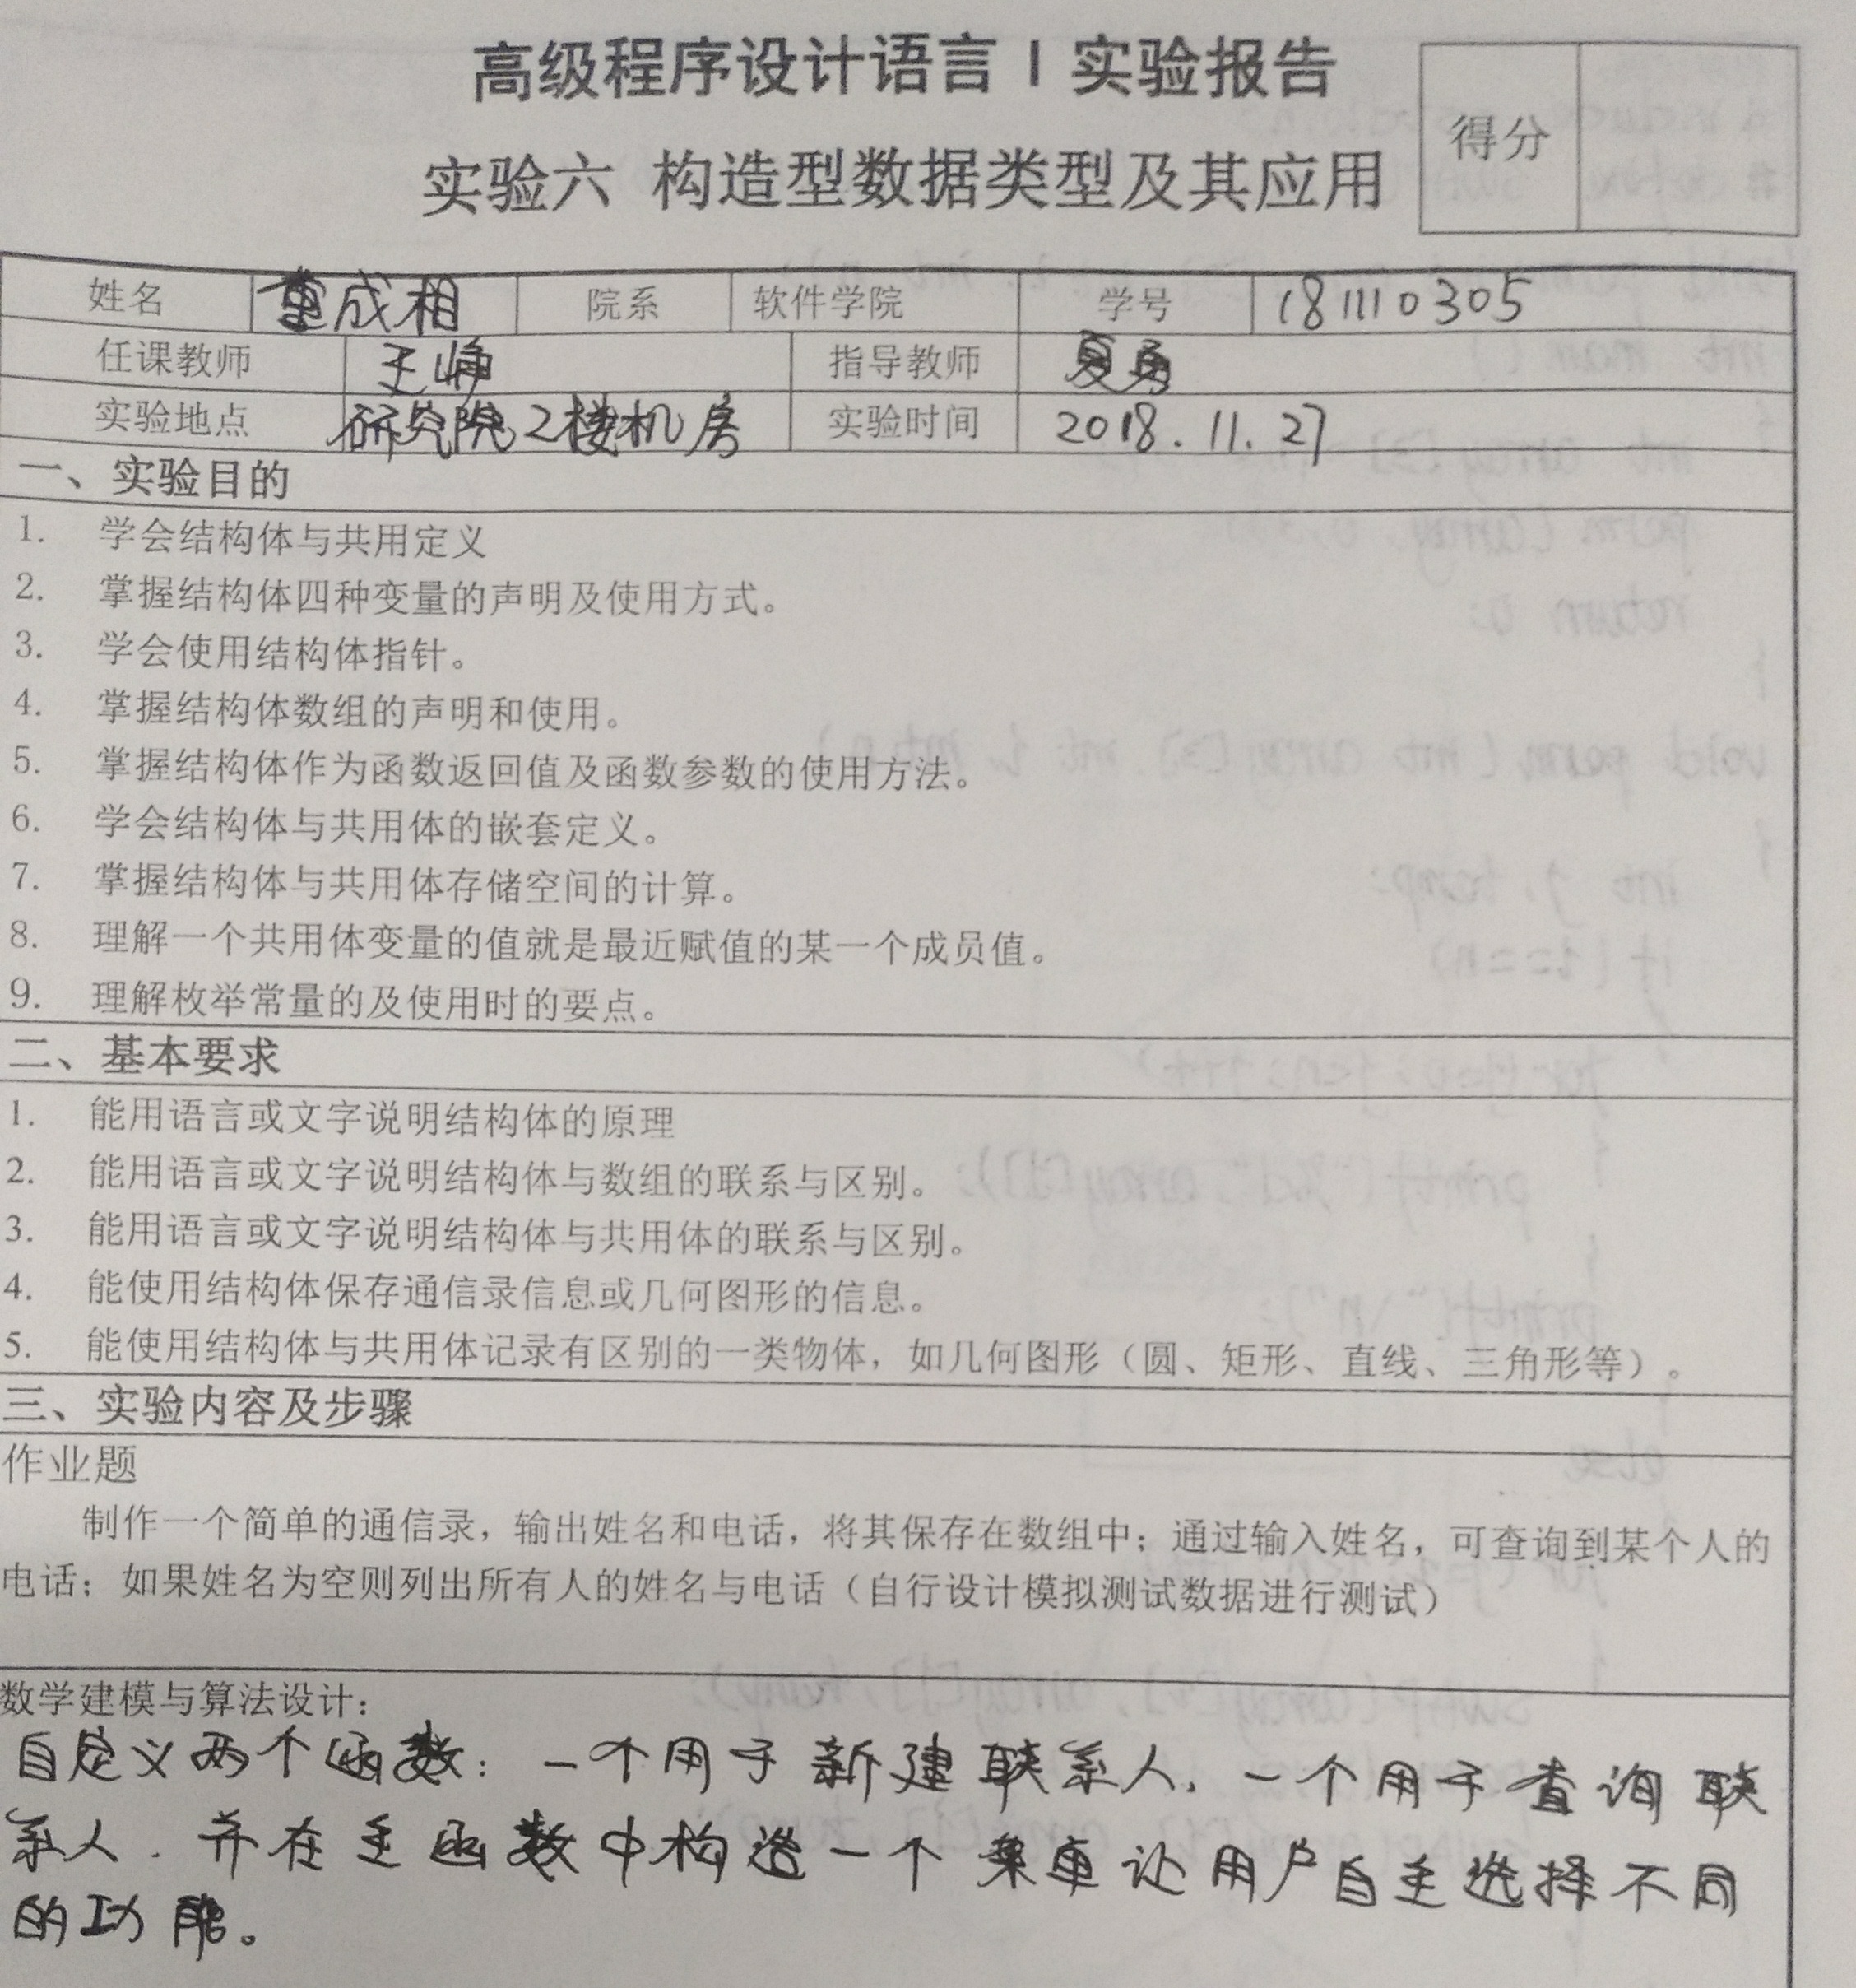 高级程序设计语言 I 实验报告
实验六 构造型数据类型及其应用
得分
姓名 董成相 院系 软件学院 学号 181110305
任课教师 王峥 指导教师 夏勇
实验地点 研究院2楼机房 实验时间 2018.11.27
一、实验目的
1. 学会结构体与共用定义
2. 掌握结构体四种变量的声明及使用方式。
3. 学会使用结构体指针。
4. 掌握结构体数组的声明和使用。
5. 掌握结构体作为函数返回值及函数参数的使用方法。
6. 学会结构体与共用体的嵌套定义。
7. 掌握结构体与共用体存储空间的计算。
8. 理解一个共用体变量的值就是最近赋值的某一个成员值。
9. 理解枚举常量的及使用时的要点。
二、基本要求
1. 能用语言或文字说明结构体的原理
2. 能用语言或文字说明结构体与数组的联系与区别。
3. 能用语言或文字说明结构体与共用体的联系与区别。
4. 能使用结构体保存通信录信息或几何图形的信息。
5. 能使用结构体与共用体记录有区别的一类物体，如几何图形（圆、矩形、直线、三角形等）。
三、实验内容及步骤
作业题
制作一个简单的通信录，输出姓名和电话，将其保存在数组中；通过输入姓名，可查询到某个人的
电话；如果姓名为空则列出所有人的姓名与电话（自行设计模拟测试数据进行测试）
数学建模与算法设计：
自定义两个函数：一个用于新建联系人，一个用于查询联
系人．并在主函数中构造一个菜单让用户自主选择不同
的功能。